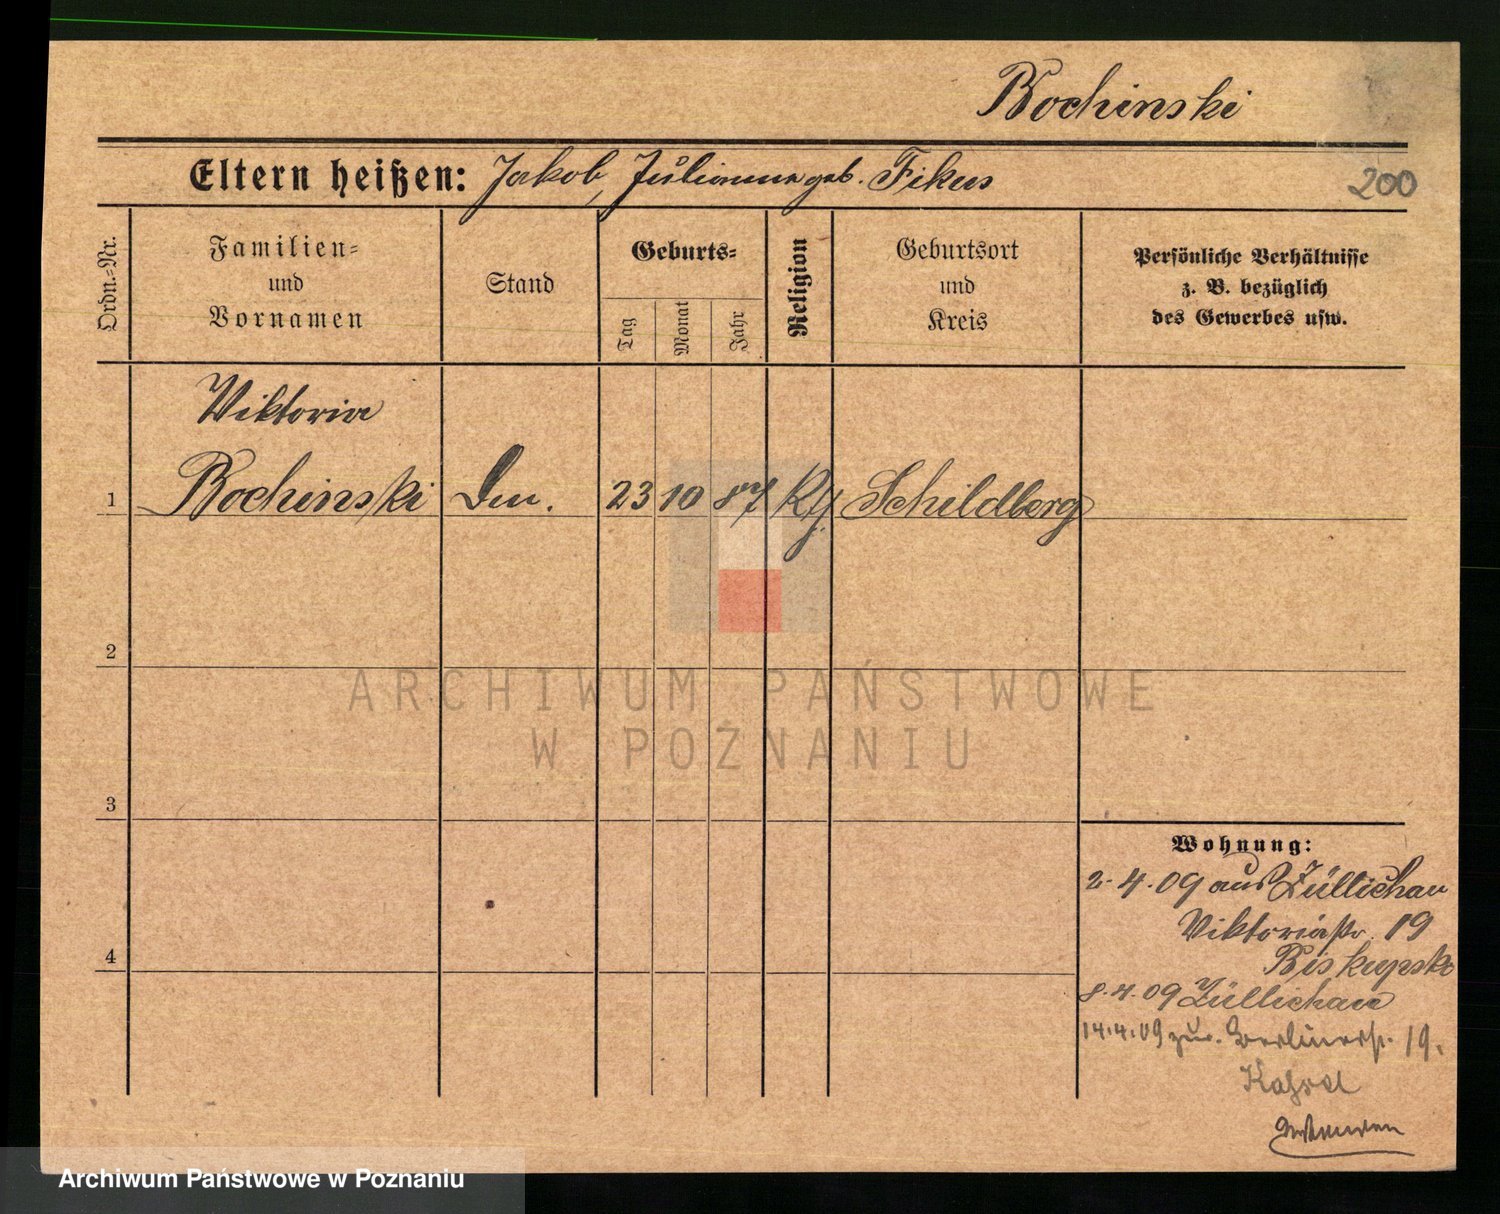 Bochinski
Eltern heißen: Jakob, Julianna geb. Fikus
200
Ordn.=Nr.
Familien=
und
Vornamen
Stand
Geburts=
Tag
Monat
Jahr
Religion
Geburtsort
und
Kreis
Persönliche Verhältnisse
z. B. bezüglich
des Gewerbes usw.
Viktoria
1 Bochinski 23 10 87 Schildberg
2
ARCHIWUM PAŃSTWOWE
W POZNANIU
3
Wohnung:
2.4.09 aus Züllichau
Viktoriastr. 19
Biskupski
4
8.4.09 Züllichau
14.4.09 zur. Berlinerstr. 19.
Archiwum Państwowe w Poznaniu